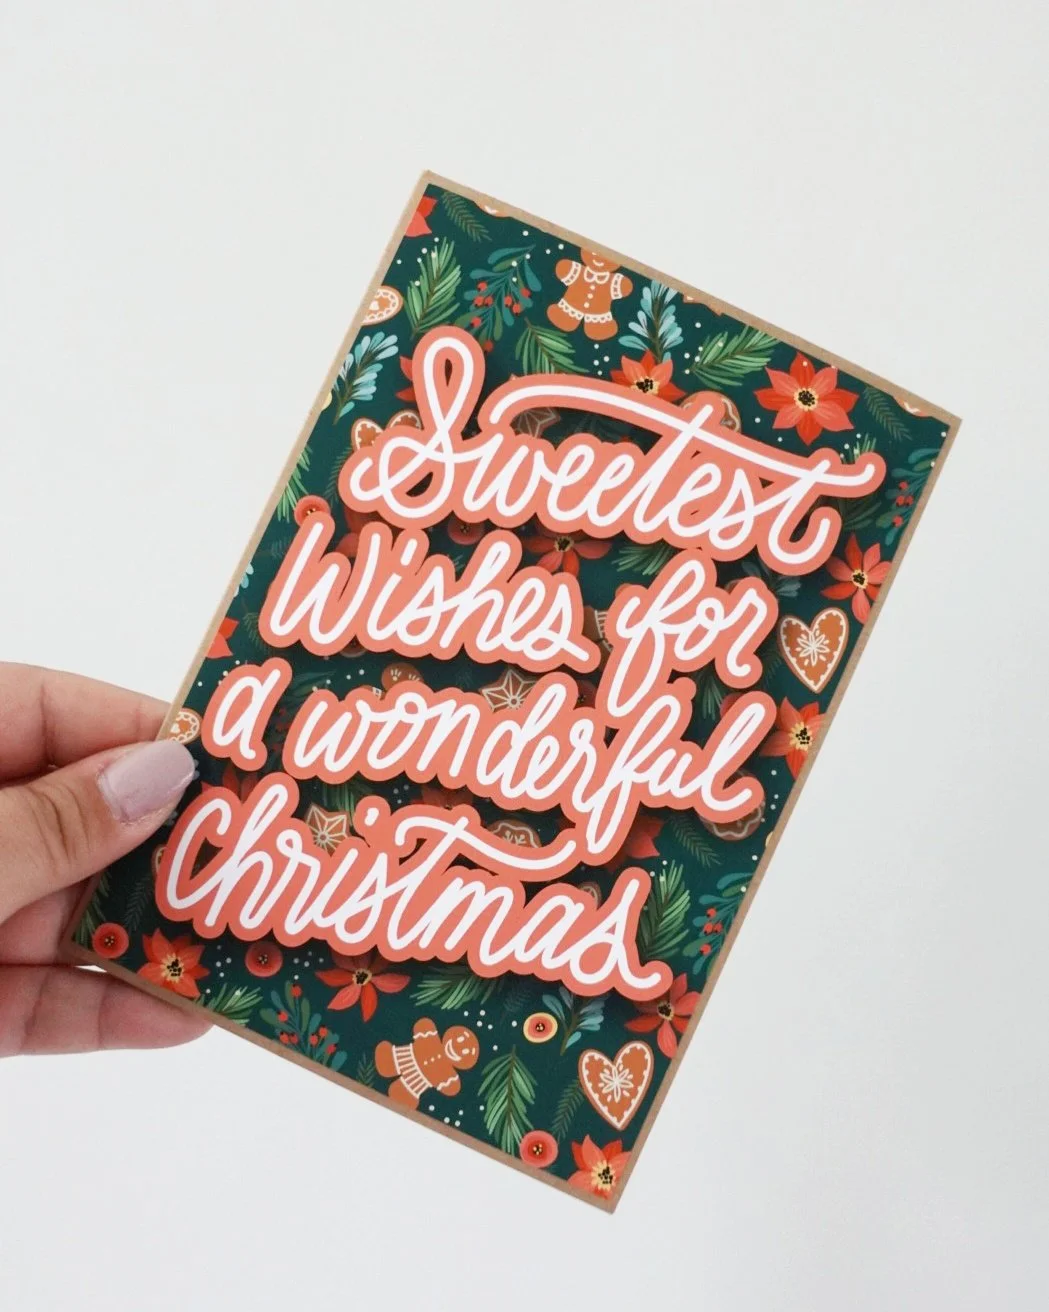 Sweetest
Wishes for
a wonderful
Christmas